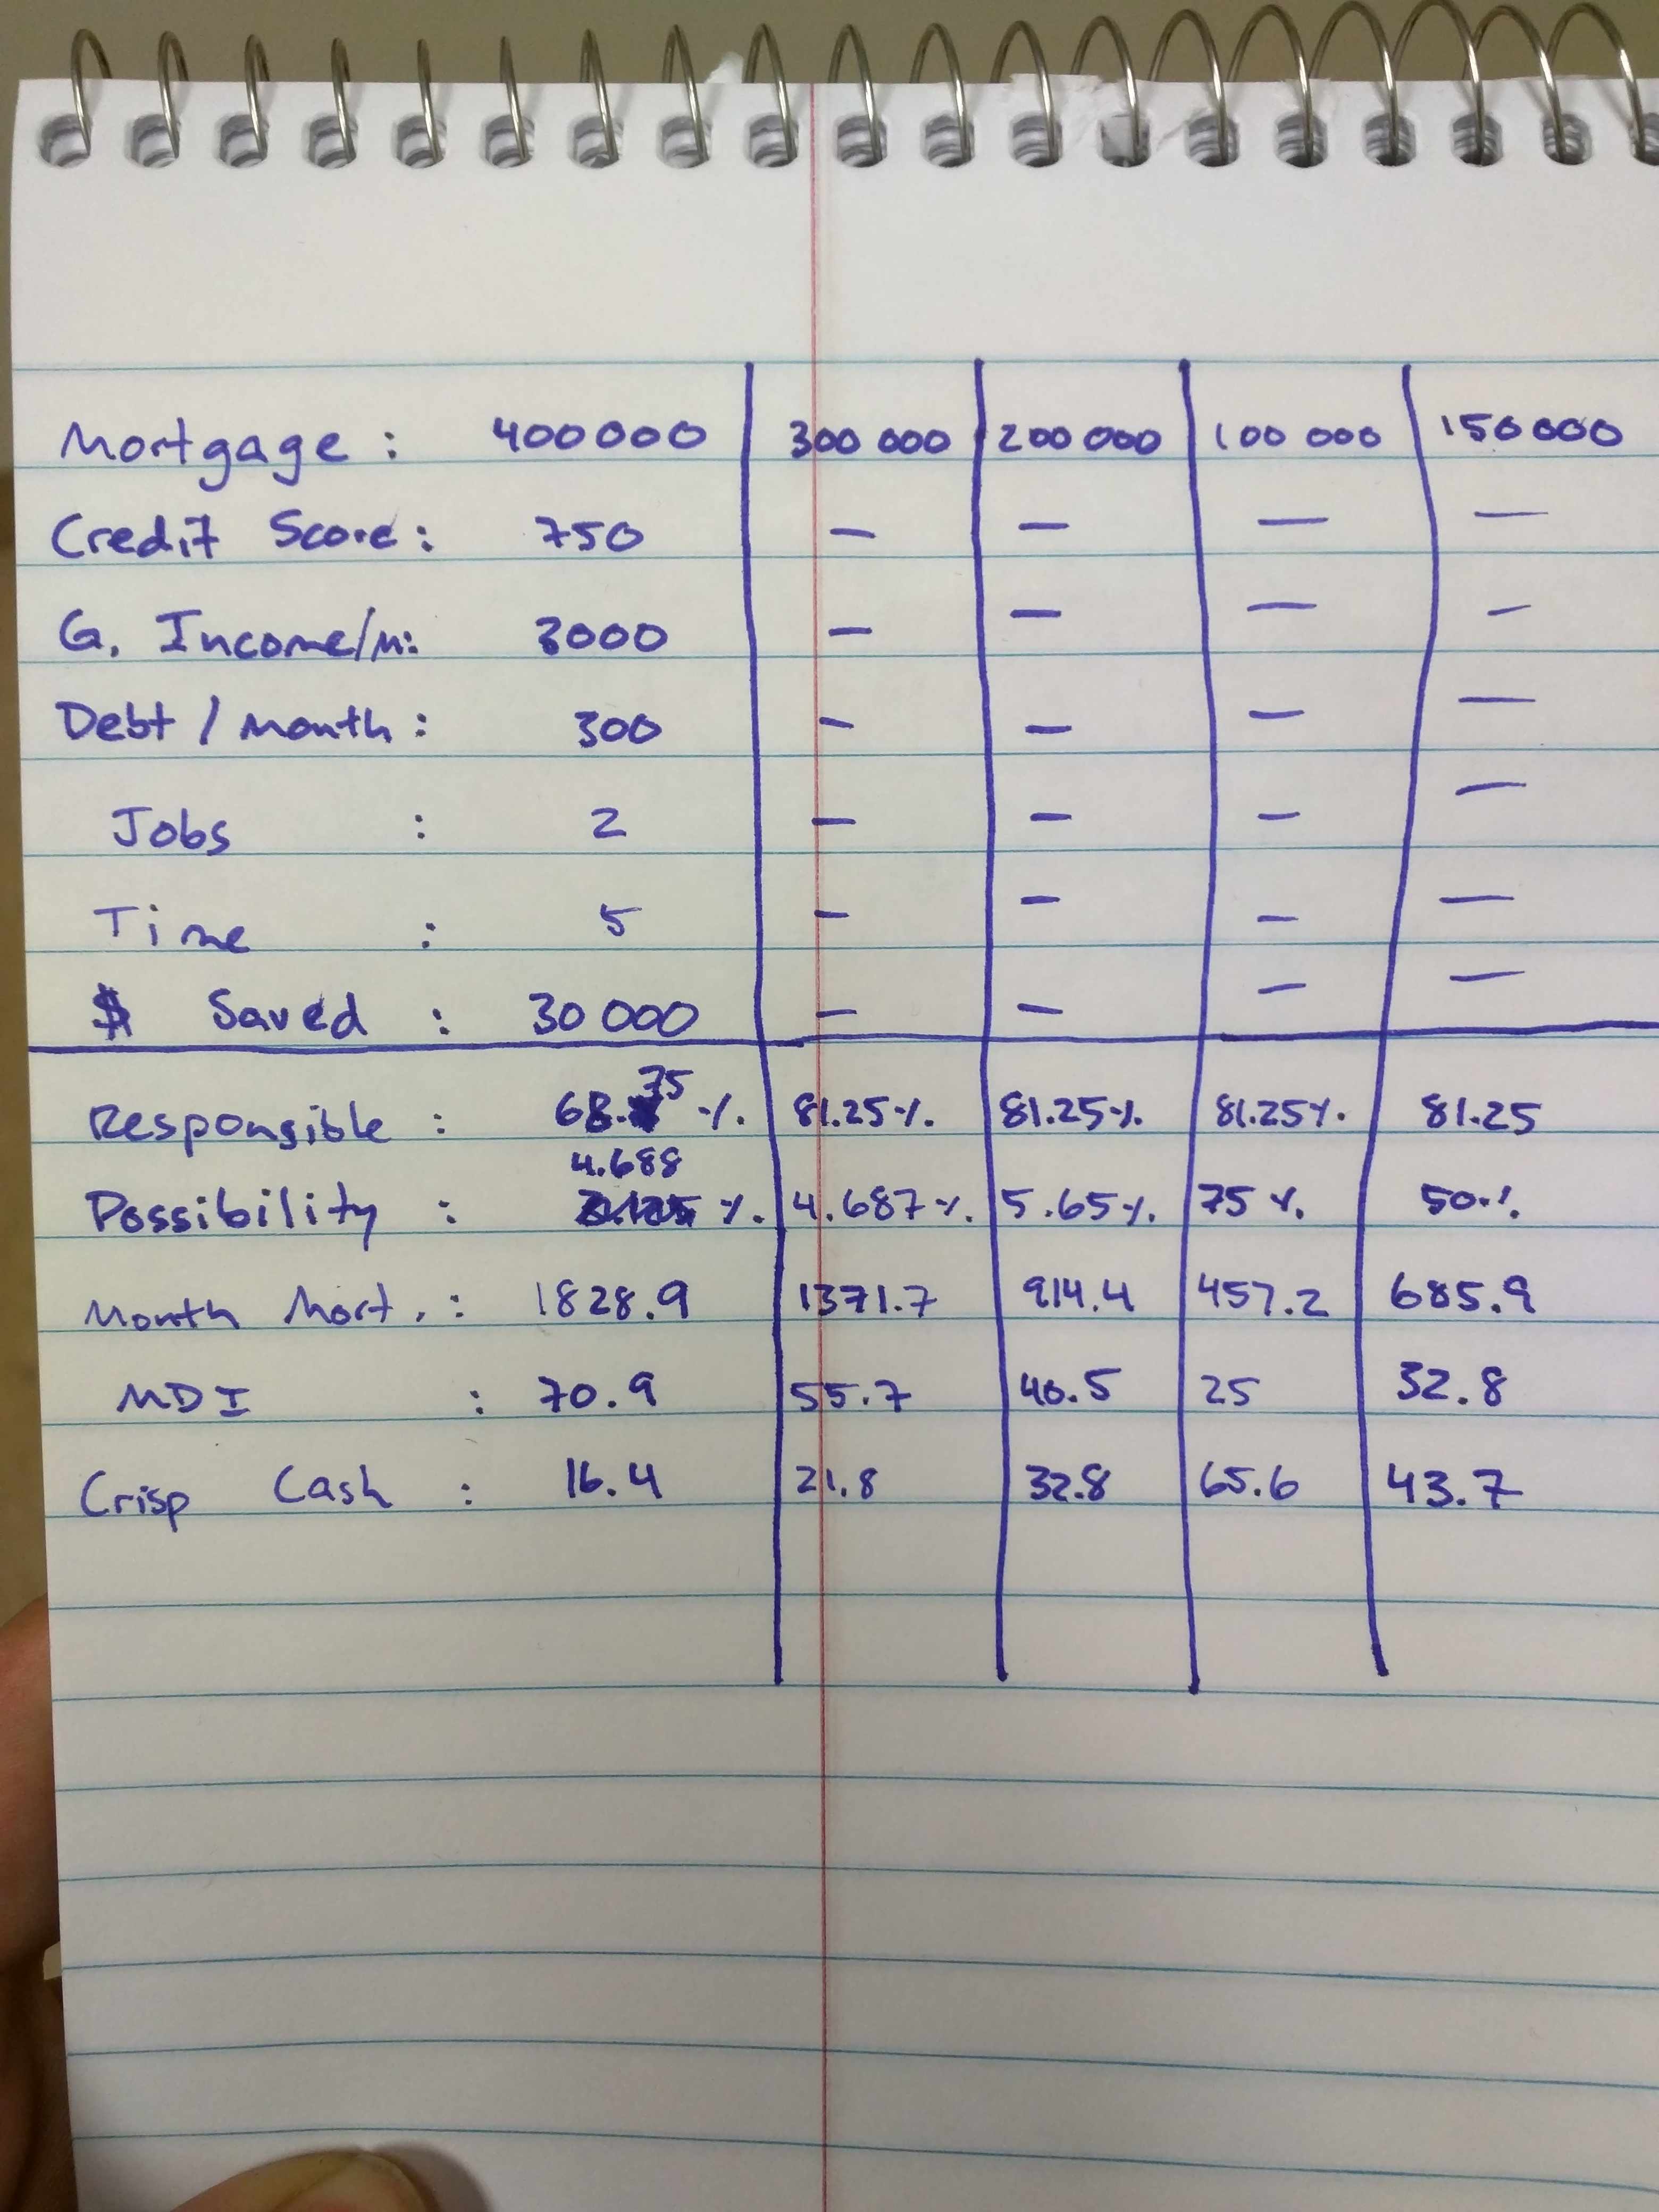 Mortgage : 400000 300 000 200 000 100 000 150000
Credit Score : 750 — — — —
G. Income/m: 3000 — — — —
Debt / month : 300 — — — —
Jobs : 2 — — — —
Time : 5 — — — —
$ Saved : 30 000 — — — —
Responsible : 68.75 % 81.25% 81.25% 81.25% 81.25
Possibility : 4.688 %. 4.687 %. 5.65%. 75 %. 50%.
Month Mort. : 1828.9 1371.7 914.4 457.2 685.9
MDI : 70.9 55.7 40.5 25 32.8
Crisp Cash : 16.4 21.8 32.8 65.6 43.7